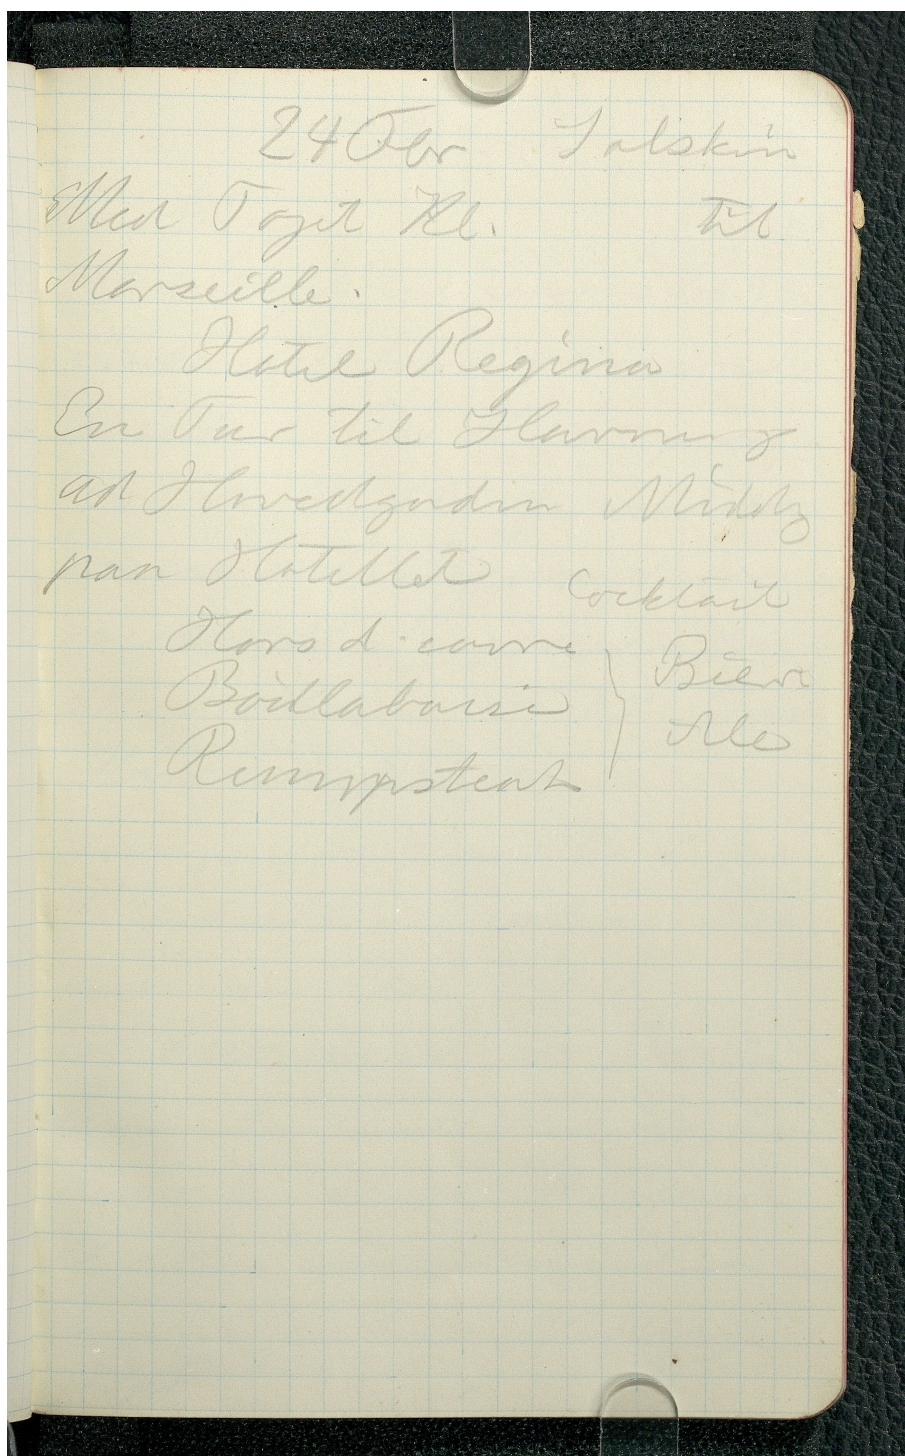 24 Febr Solskin
Med Toget Kl. til
Marseille.
Hotel Regina
En Tur til Havnen og
ad Hovedgaden Middg
paa Hotellet Cocktail
Hors d'euvre
Boillabaise } Biere
Rumpsteak Ale